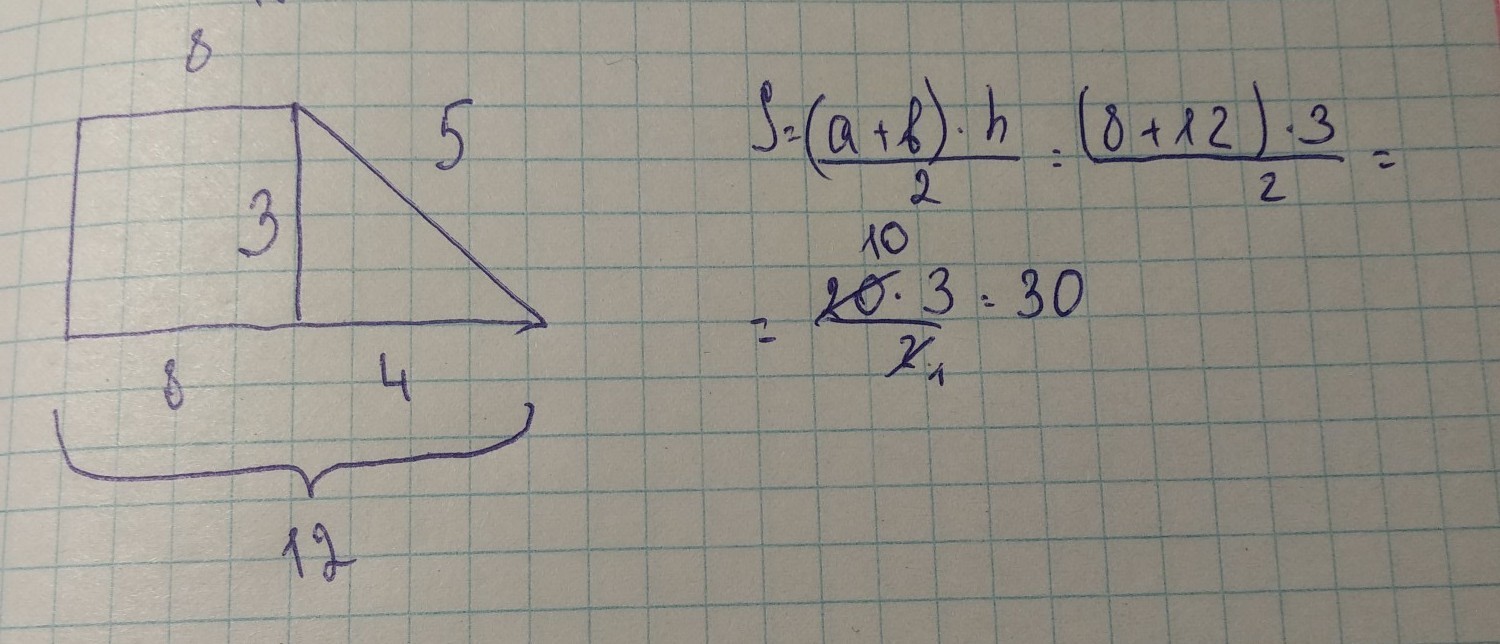 8
5
3
8 4
12
S = (a + b) · h / 2 = (8 + 12) · 3 / 2 =
10
= 20 · 3 / 2 1 = 30